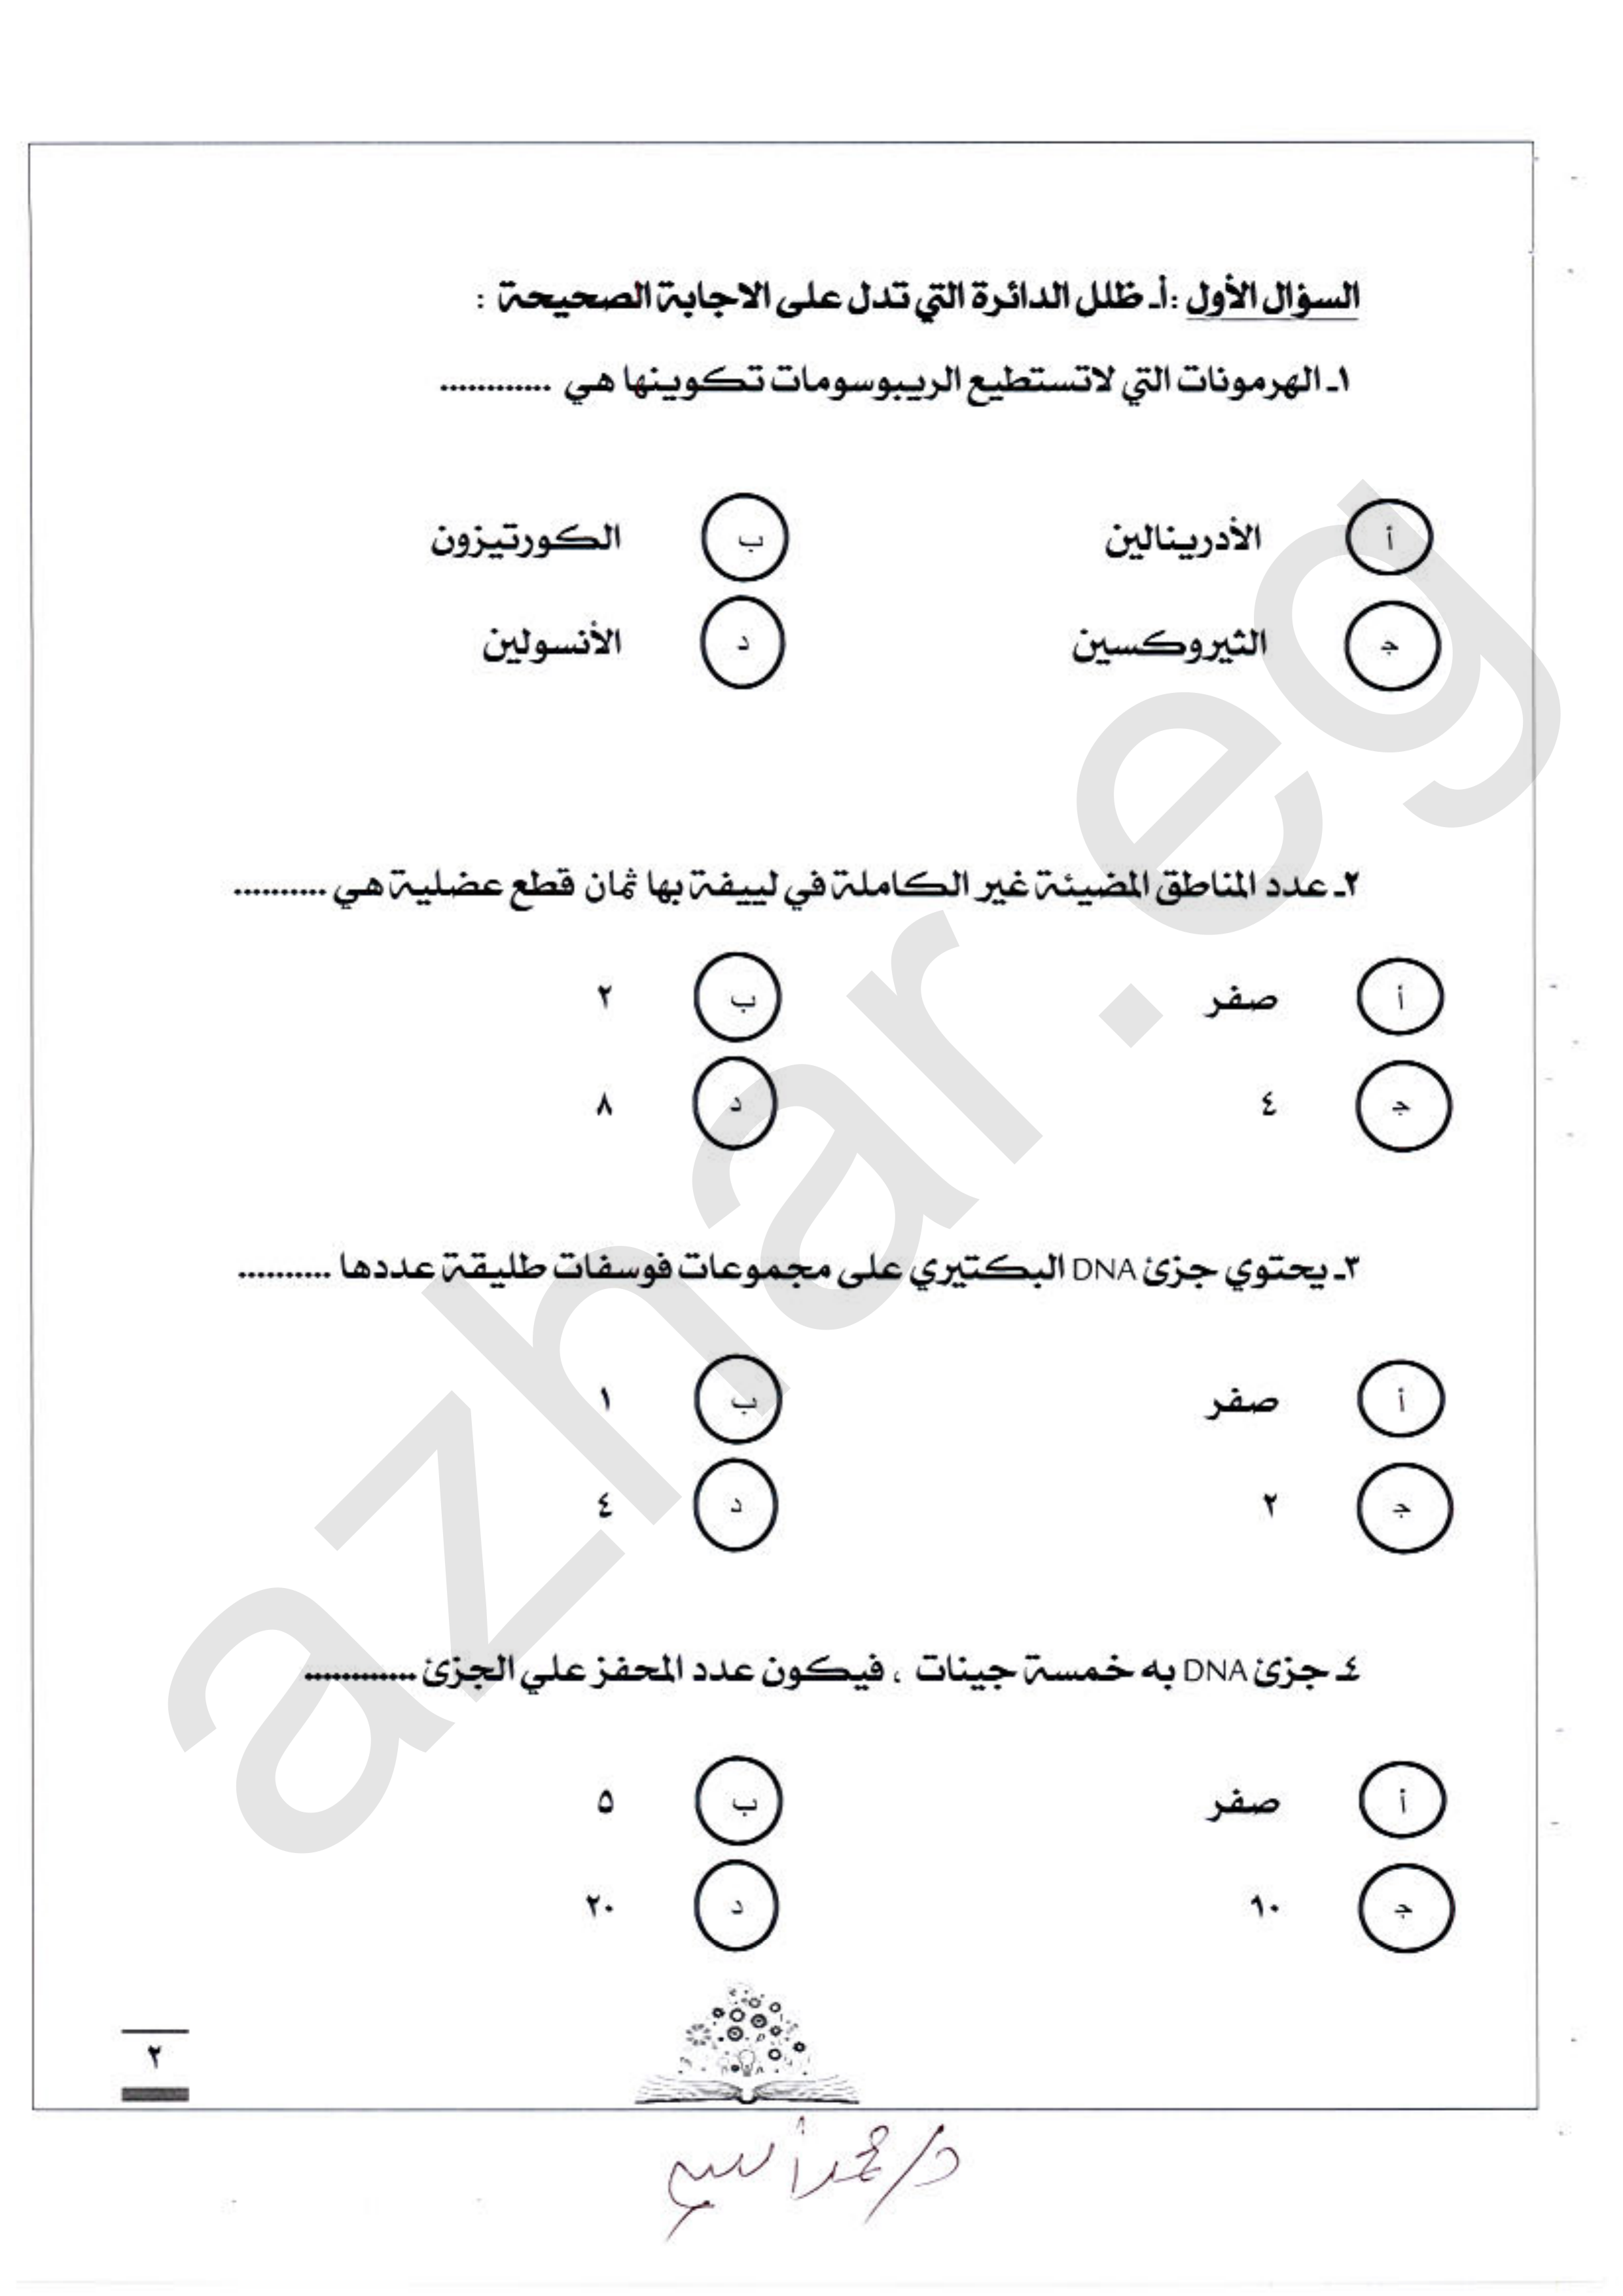 السؤال الأول : أـ ظلل الدائرة التي تدل على الاجابة الصحيحة :
١ـ الهرمونات التي لاتستطيع الريبوسومات تكوينها هي ............
أ الأدرينالين ب الكورتيزون
ج الثيروكسين د الأنسولين
٢ـ عدد المناطق المضيئة غير الكاملة في لييفة بها ثمان قطع عضلية هي ..........
أ صفر ب ٢
ج ٤ د ٨
٣ـ يحتوي جزئ DNA البكتيري على مجموعات فوسفات طليقة عددها ..........
أ صفر ب ١
ج ٢ د ٤
٤ـ جزئ DNA به خمسة جينات ، فيكون عدد المحفز علي الجزئ ............
أ صفر ب ٥
ج ١٠ د ٢٠
٢
azhar.eg
د/ محمد